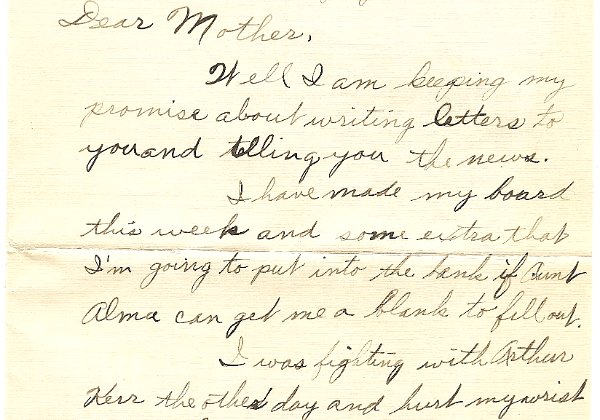 Dear Mother,
Well I am keeping my
promise about writing letters to
you and telling you the news.
I have made my board
this week and some extra that
I'm going to put into the bank if Aunt
Alma can get me a blank to fill out.
I was fighting with Arthur
Kerr the other day and hurt my wrist